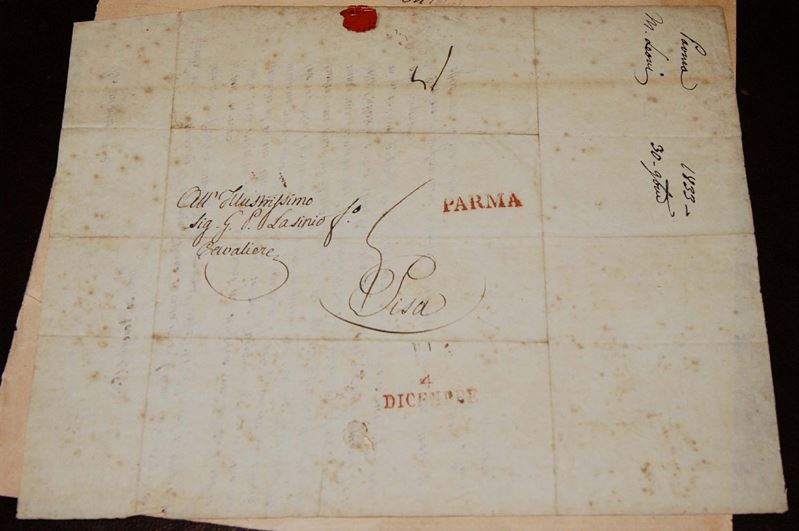 Parma
M. Leoni
1833
30 - 9bre
PARMA
All' Illustrissimo
Sig. G. P. Lasinio f.º
Cavaliere
Pisa
4
DICEMBRE